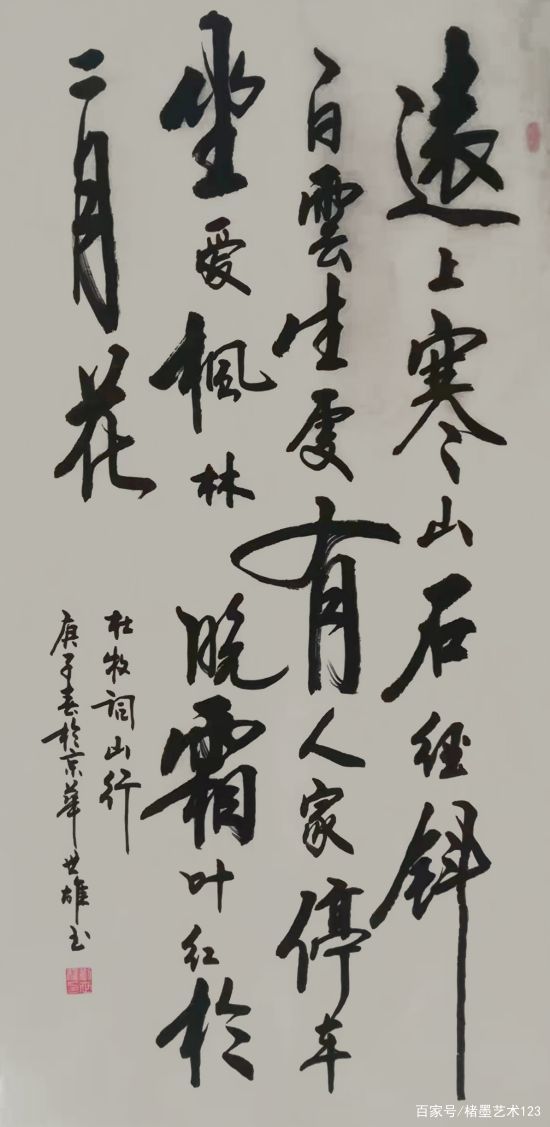 遠上寒山石径斜
白雲生処有人家停车
坐爱楓林晚霜叶红於
二月花
杜牧词山行
庚子春於京華世雄书
百家号/楮墨艺术123